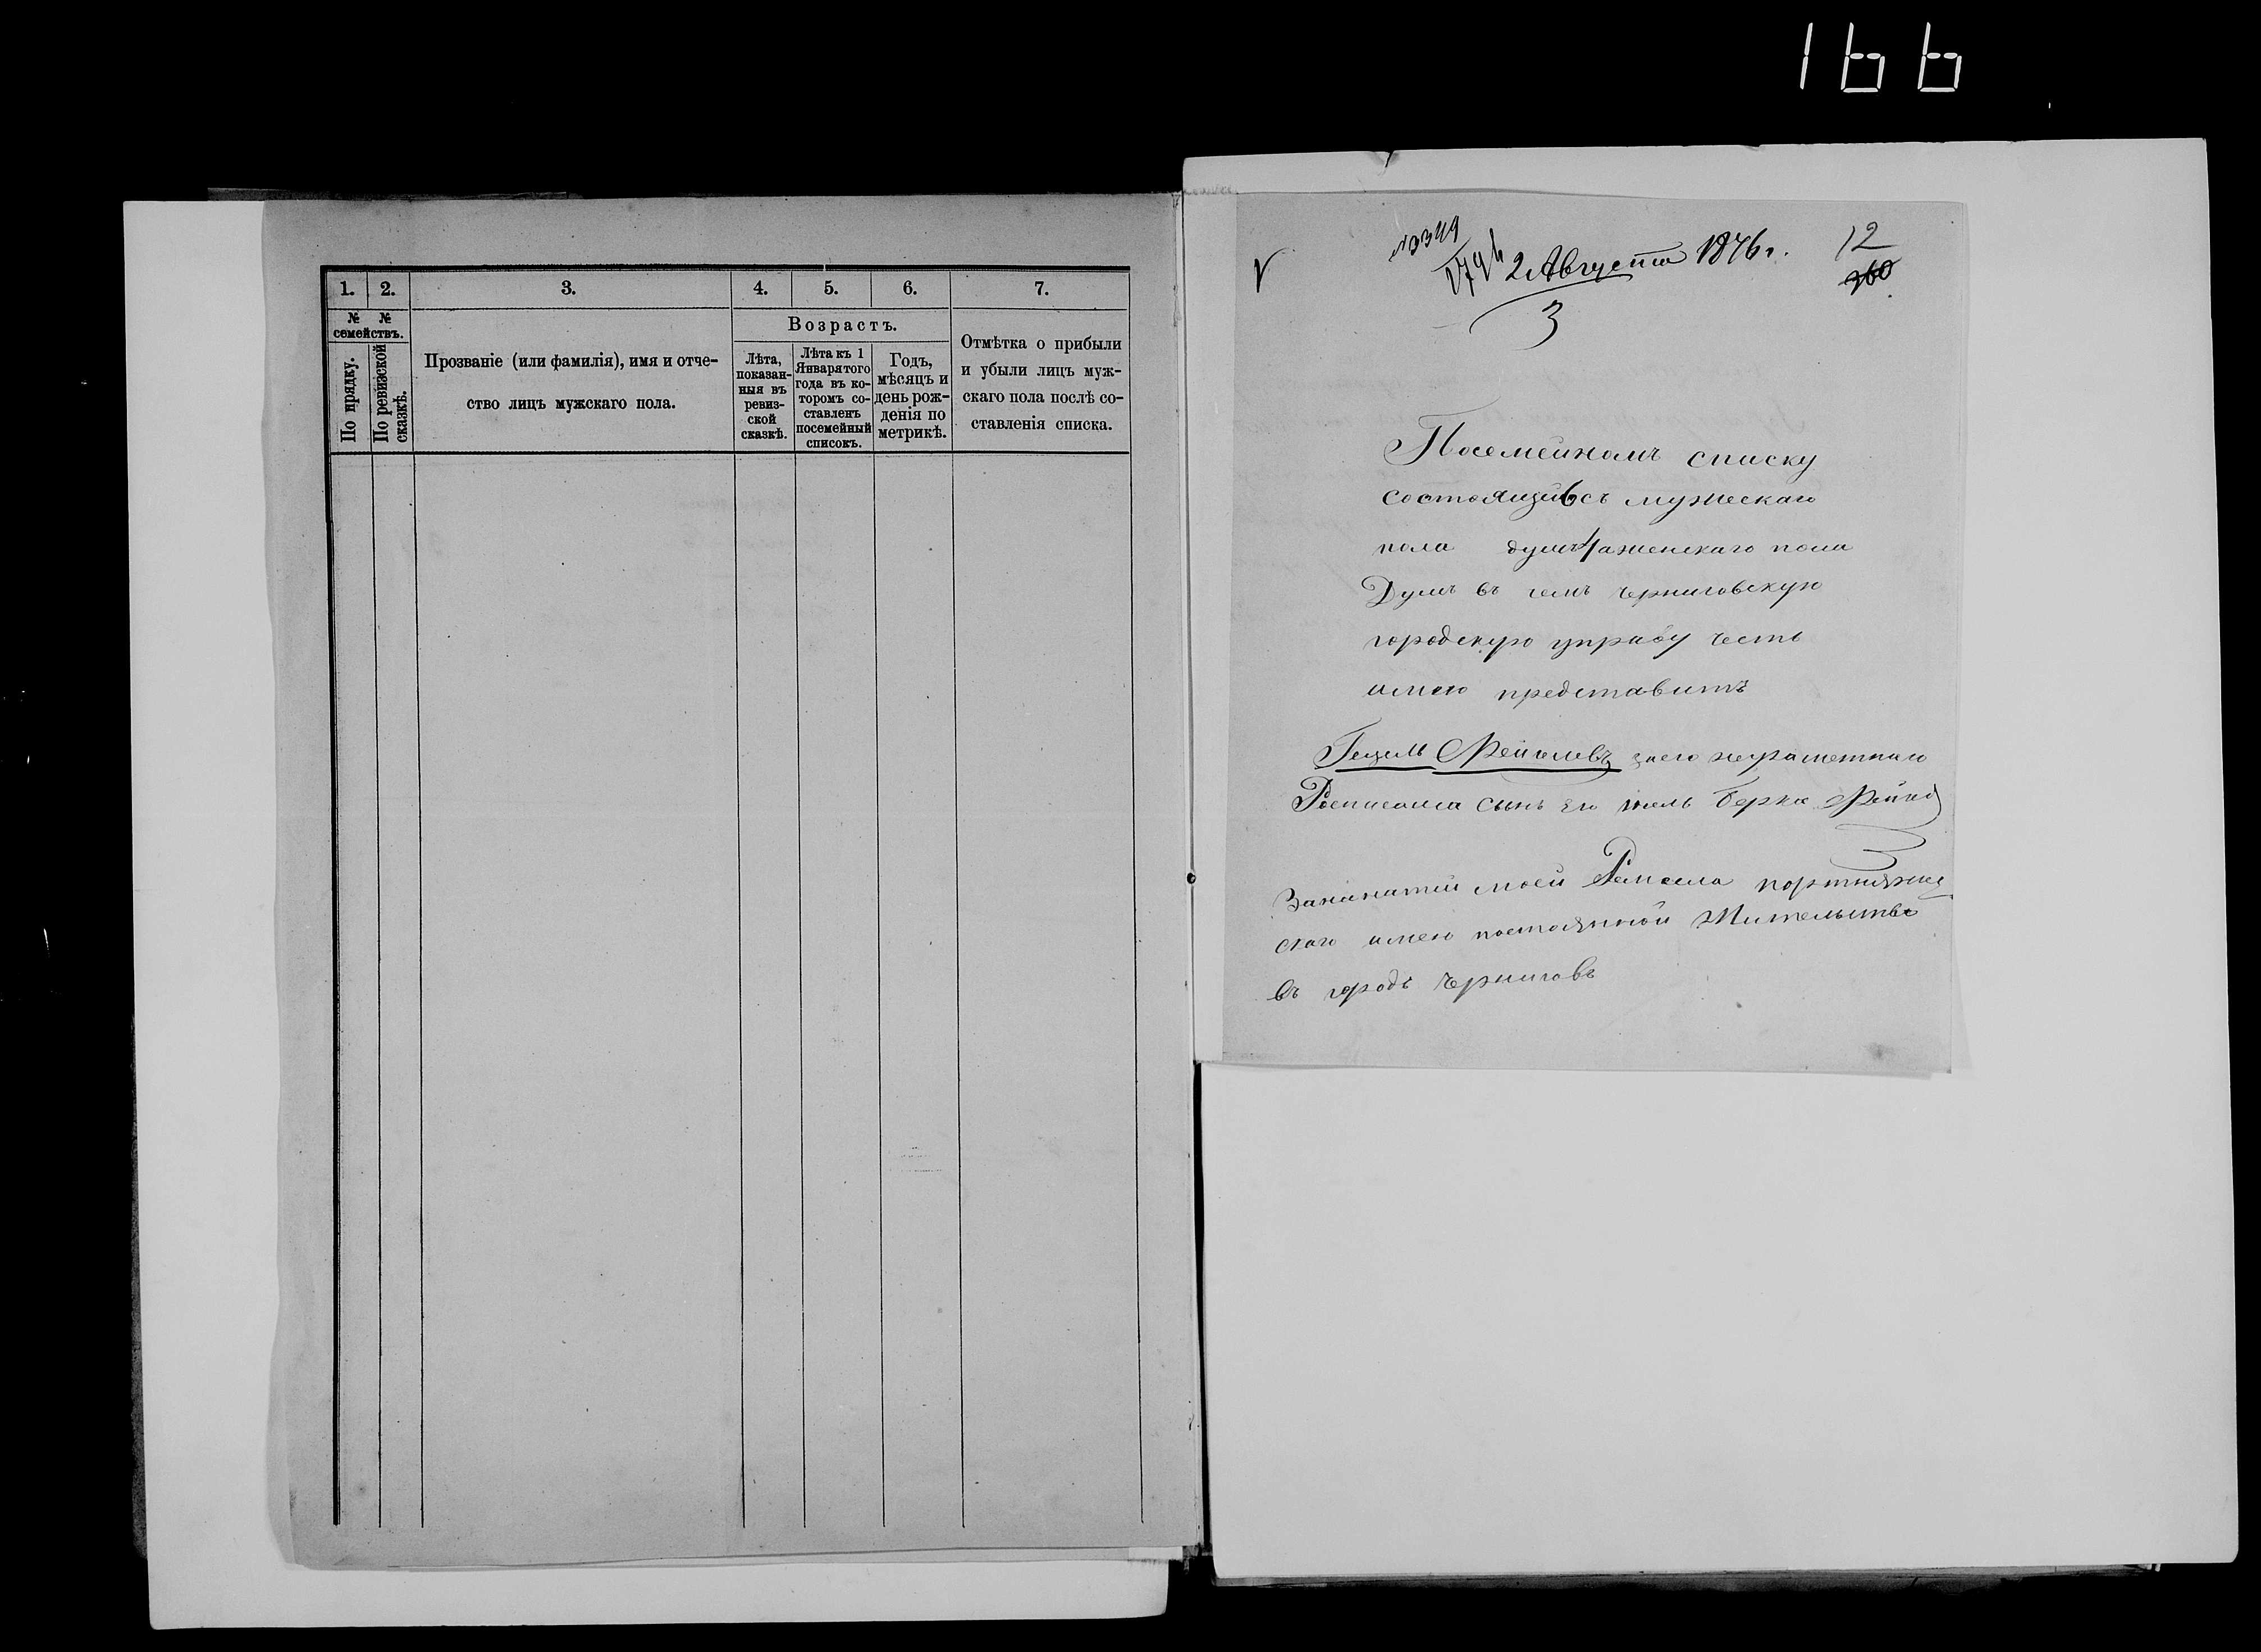 166
1. 2. 3. 4. 5. 6. 7.
№ № семействъ.
По прядку.
По ревизской сказкѣ.
Прозваніе (или фамилія), имя и отче-
ство лицъ мужскаго пола.
Возрастъ.
Лѣта,
показан-
ныя въ
ревиз-
ской
сказкѣ.
Лѣта къ 1
Января того
года въ ко-
торомъ со-
ставленъ
посемейный
списокъ.
Годъ,
мѣсяцъ и
день рож-
денія по
метрикѣ.
Отмѣтка о прибыли
и убыли лицъ муж-
скаго пола послѣ со-
ставленія списка.
№ 3349
2 Августа 1876 г.
12
360
3
Посемейномъ списку
состоящихъ 6 мужескаго
пола душъ 4 а женскаго пола
Душъ въ чемъ черниговскую
городскую управу честь
имею представить
Гецель неграметнаго
Росписался сынъ его Берка
моей Ремесла портняже
скаго имею постоянной Жительство
въ городѣ Черниговъ